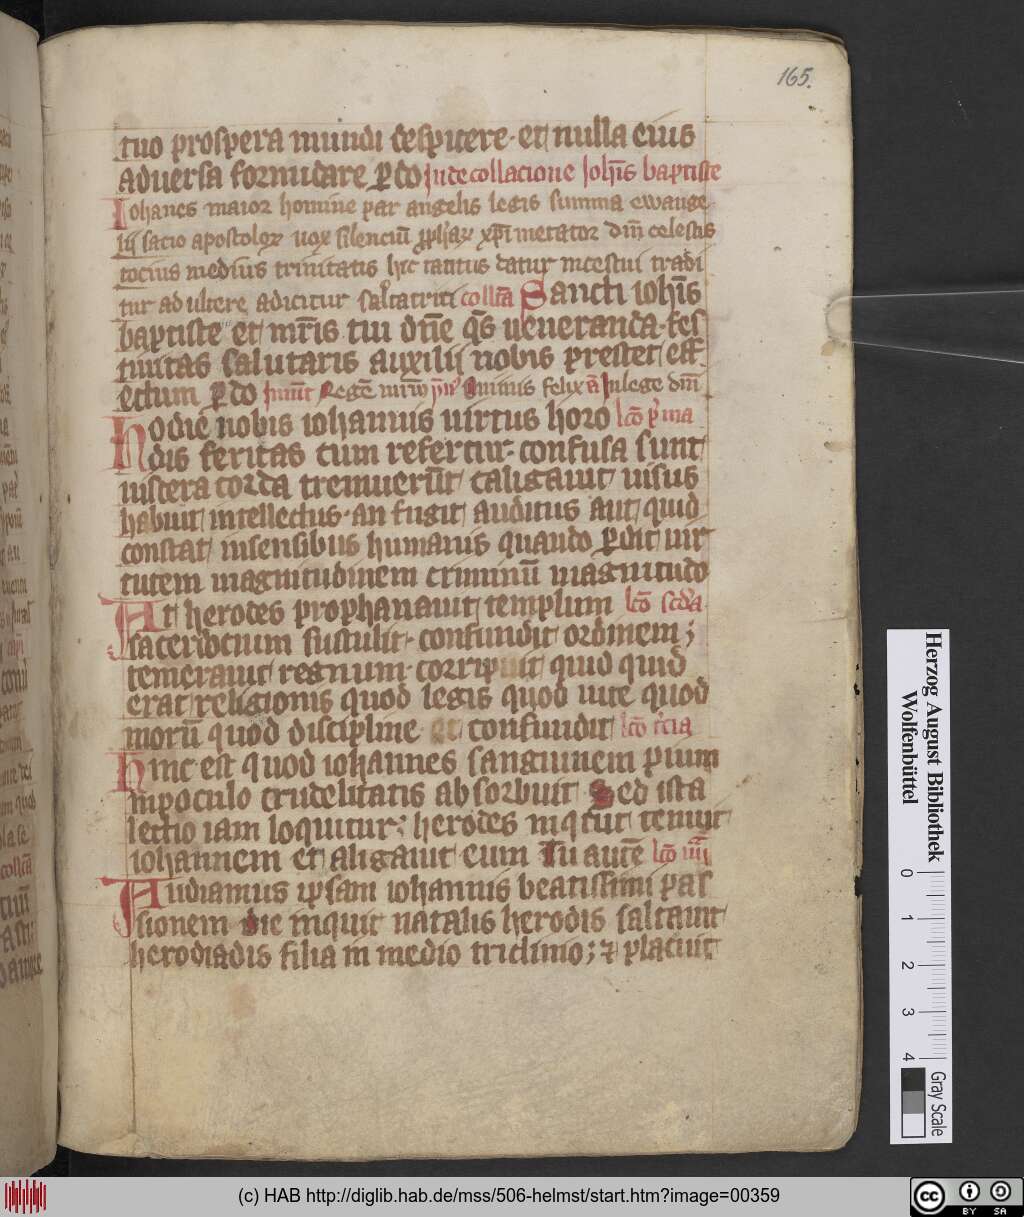 165.
tuo prospera mundi despicere · et nulla eius
adversa formidare ꝑ do In decollacione Joh̄is baptiste
Iohanes maior homine par angelis legis summa ewange
lij sacio apostoloꝝ uox silenciū ꝓph̄aꝝ xp̄i metator dn̄i celestis
tocius medius trinitatis hic tantus datur incestui tradi
tur adultere adicitur saltatrici coll̄ca Sancti ioh̄is
baptiste et mr̄is tui dn̄e qs̄ ueneranda · fes
tiuitas salutaris auxilij nobis prestet eff
ectum ꝑ do Inuit̄ Regē Animus felix añ In lege dn̄i
Hodie nobis iohannis uirtus horo lcō p'ma
dis feritas cum refertur · confusa sunt
uiscera corda tremuerūt caligauit uisus
habuit intellectus · an fugit auditus aut quid
constat in sensibus humanis quando ꝑdit uir
tutem magnitudinem criminū magnitudo
At herodes prophanauit templum lcō scd̄a
sacerdotium sustulit · confundit ordinem ;
temerauit regnum · corripuit quid quid
erat religionis quod legis quod uite quod
morū quod discipline et confundit lcō tc̄ia
Hinc est quod iohannes sanguinem pium
in poculo crudelitatis absorbuit Sed ista
lectio iam loquitur ; herodes inqt̄ tenuit
iohannem et aligauit eum Tu autē lcō iiii
Audiamus ipsam iohannis beatissimi pas
sionem die inquit natalis herodis saltauit
herodiadis filia in medio triclinio ; ⁊ placuit
Herzog August Bibliothek
Wolfenbüttel
0 1 2 3 4
Gray Scale
(c) HAB http://diglib.hab.de/mss/506-helmst/start.htm?image=00359
cc BY SA